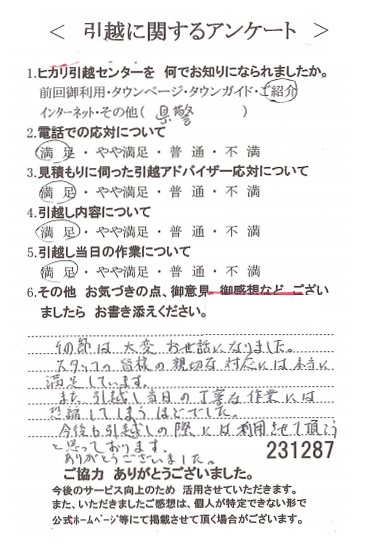 ＜ 引越に関するアンケート ＞
1.ヒカリ引越センターを 何でお知りになられましたか。
前回御利用・タウンページ・タウンガイド・ご紹介
インターネット・その他( 県警 )
2.電話での応対について
満 足・やや満足・普 通・不 満
3.見積もりに伺った引越アドバイザー応対について
満 足・やや満足・普 通・不 満
4.引越し内容について
満 足・やや満足・普 通・不 満
5.引越し当日の作業について
満 足・やや満足・普 通・不 満
6.その他 お気づきの点、御意見 御感想など ござい
ましたら お書き添えください。
は大変お世話になりました。
スタッフの皆様の親切な対応には本当に
満足しています。
また、引越し当日の丁寧な作業には
恐縮してしまうほどでした。
今後も引越しの際には利用させて頂こう
と思っております。
ありがとうございました。
231287
ご協力 ありがとうございました。
今後のサービス向上のため 活用させていただきます。
また、いただきましたご感想は、個人が特定できない形で
公式ホームページ等にて掲載させて頂く場合がございます。